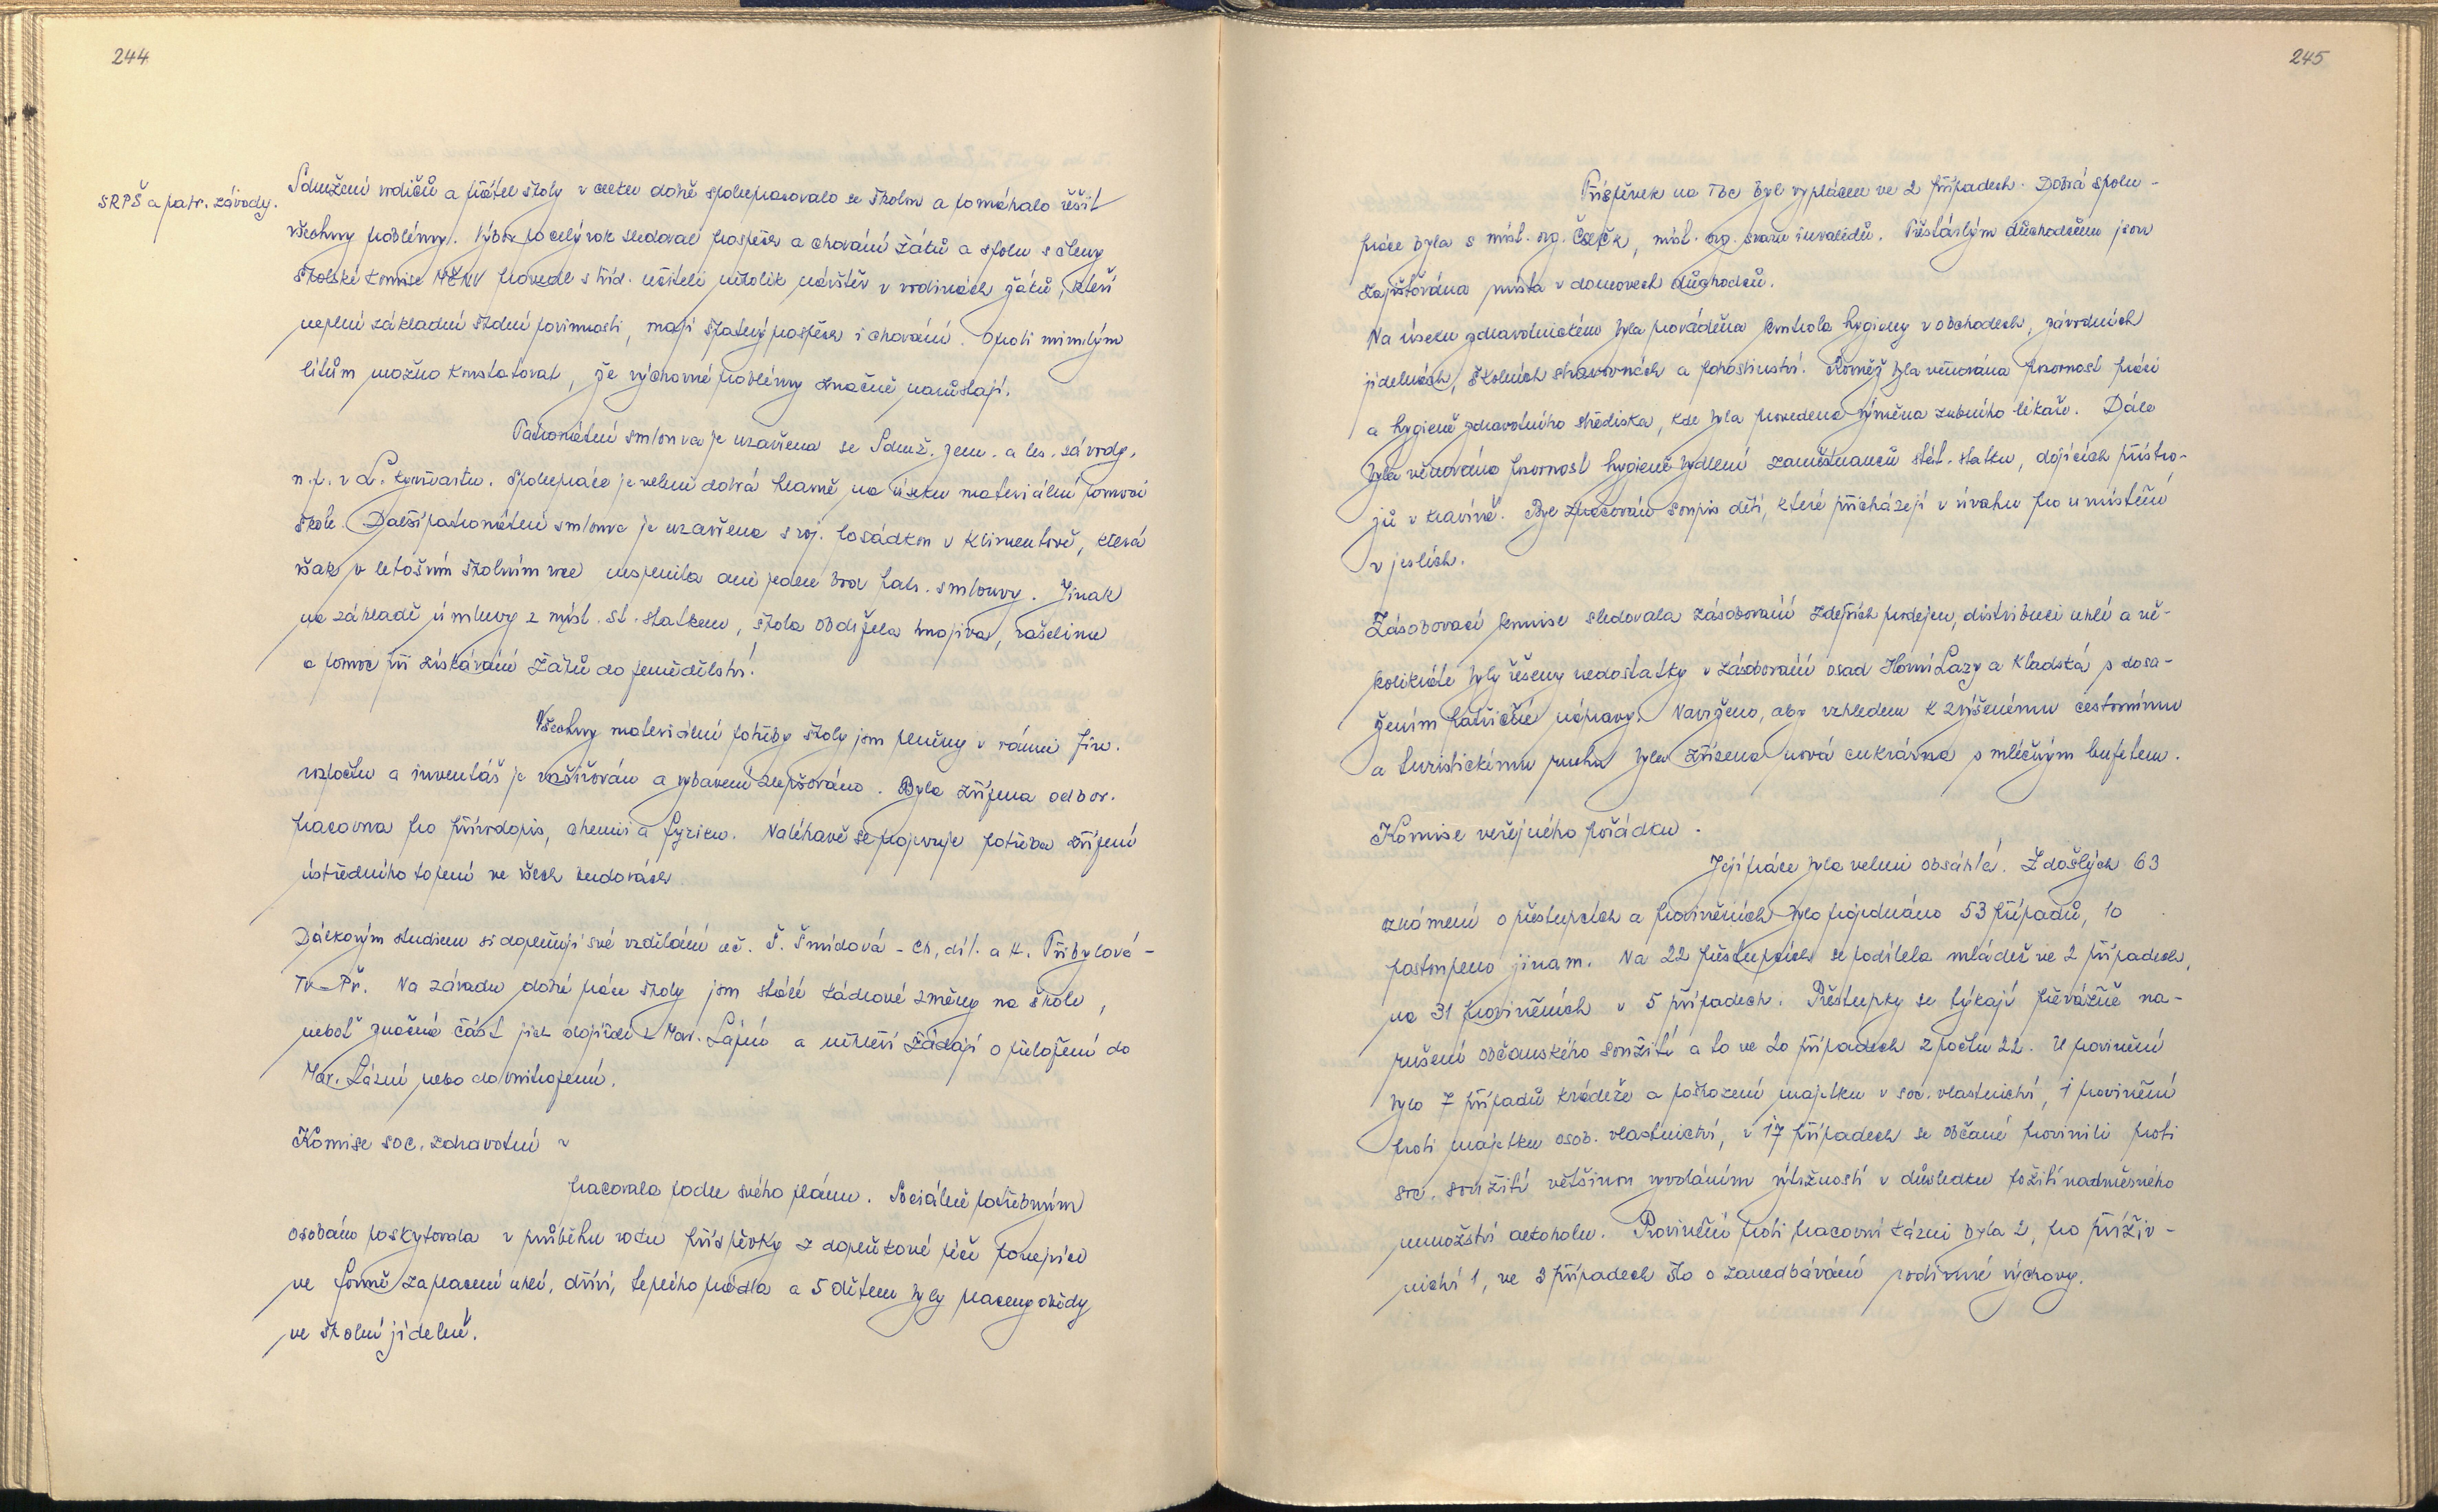 244
SRPŠ a patr. závody.
Sdružení rodičů a přátel školy v celku dobře spolupracovalo se školou a pomáhalo řešit
všechny problémy. Výbor po celý rok sledoval prospěch a chování žáků a spolu s členy
školské komise MěNV provedl s tříd. učiteli několik návštěv v rodinách žáků, kteří
neplní základní školní povinnosti, mají špatný prospěch i chování. Oproti minulým
létům možno konstatovat, že výchovné problémy značně narůstají.
Patronátní smlouva je uzavřena se Sdruž. zem. a les. závody,
n.p. v L. Kynžvartu. Spolupráce je velmi dobrá hlavně na úseku materiální pomoci
škole. Další patronátní smlouva je uzavřena s voj. posádkou v Klimentově, která
však v letošním školním roce nesplnila ani jeden bod patr. smlouvy. Jinak
na základě úmluvy z míst. st. statkem, škola obdržela hnojiva, rašelinu
a pomoc při získávání žáků do zemědělství.
Všechny materiální potřeby školy jsou plněny v rámci fin.
rozpočtu a inventář je rozšiřován a vybavení zlepšováno. Byla zřízena odbor.
pracovna pro přírodopis, chemii a fyziku. Naléhavě se projevuje potřeba zřízení
ústředního topení ve všech budovách.
Dálkovým studiem si doplňují své vzdělání uč. Š. Šmídová - Ch, díl. a H. Přibylová -
Tv-Př. Na závadu dobré práce školy jsou stálé kádrové změny na škole,
neboť značná část jich dojíždí z Mar. Lázní a někteří žádají o přeložení do
Mar. Lázní nebo do vnitrozemí.
Komise soc. zdravotní ~
pracovala podle svého plánu. Sociálně potřebným
osobám poskytovala v průběhu roku příspěvky z doplňkové péče ponejvíce
ve formě zaplacení uhlí, dříví, teplého prádla a 5 dětem byly placeny obědy
ve školní jídelně.
245
Příspěvek na Tbc byl vyplácen ve 2 případech. Dobrá spolu-
práce byla s míst. org. ČSČK, míst. org. svazu invalidů. Přestárlým důchodcům jsou
zajišťována místa v domovech důchodců.
Na úseku zdravotnickém byla prováděna kontrola hygieny v obchodech, závodních
jídelnách, školních stravovnách a pohostinství. Rovněž byla věnována pozornost práci
a hygieně zdravotního střediska, kde byla provedena výměna zubního lékaře. Dále
byla věnována pozornost hygieně bydlení zaměstnanců stát. statku, dojících přístro-
jů v kravíně. Byl zpracován soupis dětí, které přicházejí v úvahu pro umístění
v jeslích.
Zásobovací komise sledovala zásobování zdejších prodejen, distribuci uhlí a ně-
kolikráte byly řešeny nedostatky v zásobování osad Horní Lazy a Kladská s dosa-
žením patřičné nápravy. Navrženo, aby vzhledem k zvýšenému cestovnímu
a turistickému ruchu byla zřízena nová cukrárna s mléčným bufetem.
Komise veřejného pořádku.
Její práce byla velmi obsáhlá. Z došlých 63
oznámení o přestupcích a proviněních bylo projednáno 53 případů, 10
postoupeno jinam. Na 22 přestupcích se podílela mládež ve 2 případech,
na 31 proviněních v 5 případech. Přestupky se týkají převážně na-
rušení občanského soužití a to ve 20 případech z počtu 22. U provinění
bylo 7 případů krádeže a poškození majetku v soc. vlastnictví, 1 provinění
proti majetku osob. vlastnictví, v 17 případech se občané provinili proti
soc. soužití většinou vyvoláním výtržností v důsledku požití nadměrného
množství alkoholu. Provinění proti pracovní kázni byla 2, pro příživ-
nictví 1, ve 3 případech šlo o zanedbávání rodinné výchovy.